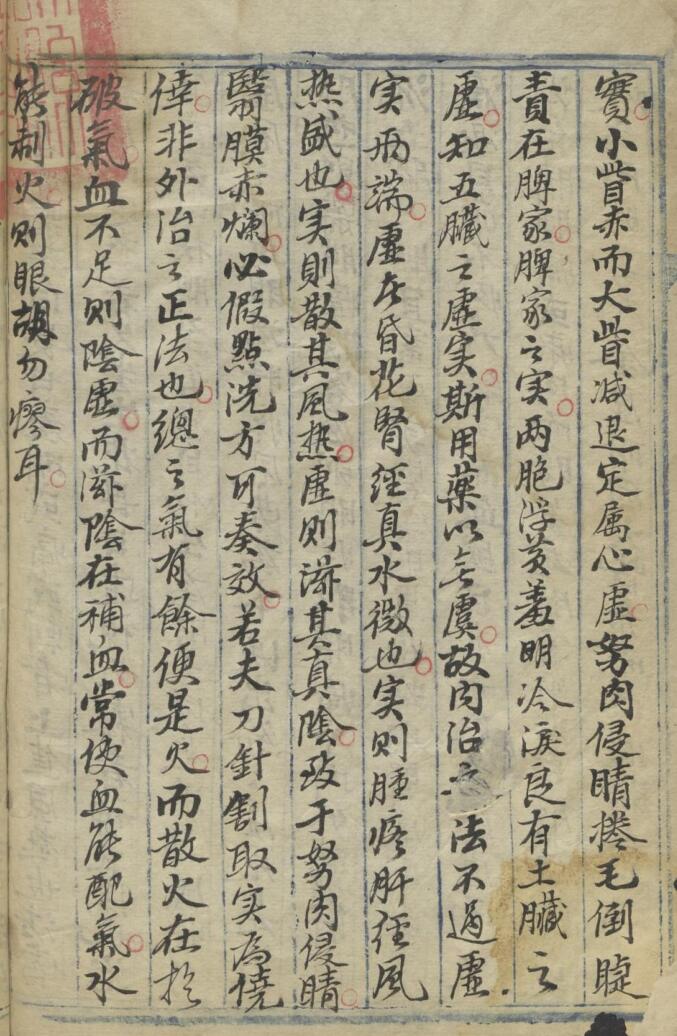 實小眥赤而大眥减退定属心虛努肉侵睛捲毛倒睫
責在脾家脾家之实两胞浮黄羞明冷淚良有土臟之
虛知五臟之虛实斯用藥以無虞故内治之法不過虛
实两端虛者昏花腎經真水微也实則腫疼肝经風
热盛也实則散其風热虛則滋其真陰致于努肉侵睛
翳膜赤爛必假點洗方可奏效若夫刀針割取实為僥
倖非外治之正法也總之氣有餘便是火而散火在於
破氣血不足則陰虛而滋陰在補血常使血能配氣水
能制火則眼胡勿瘳耳